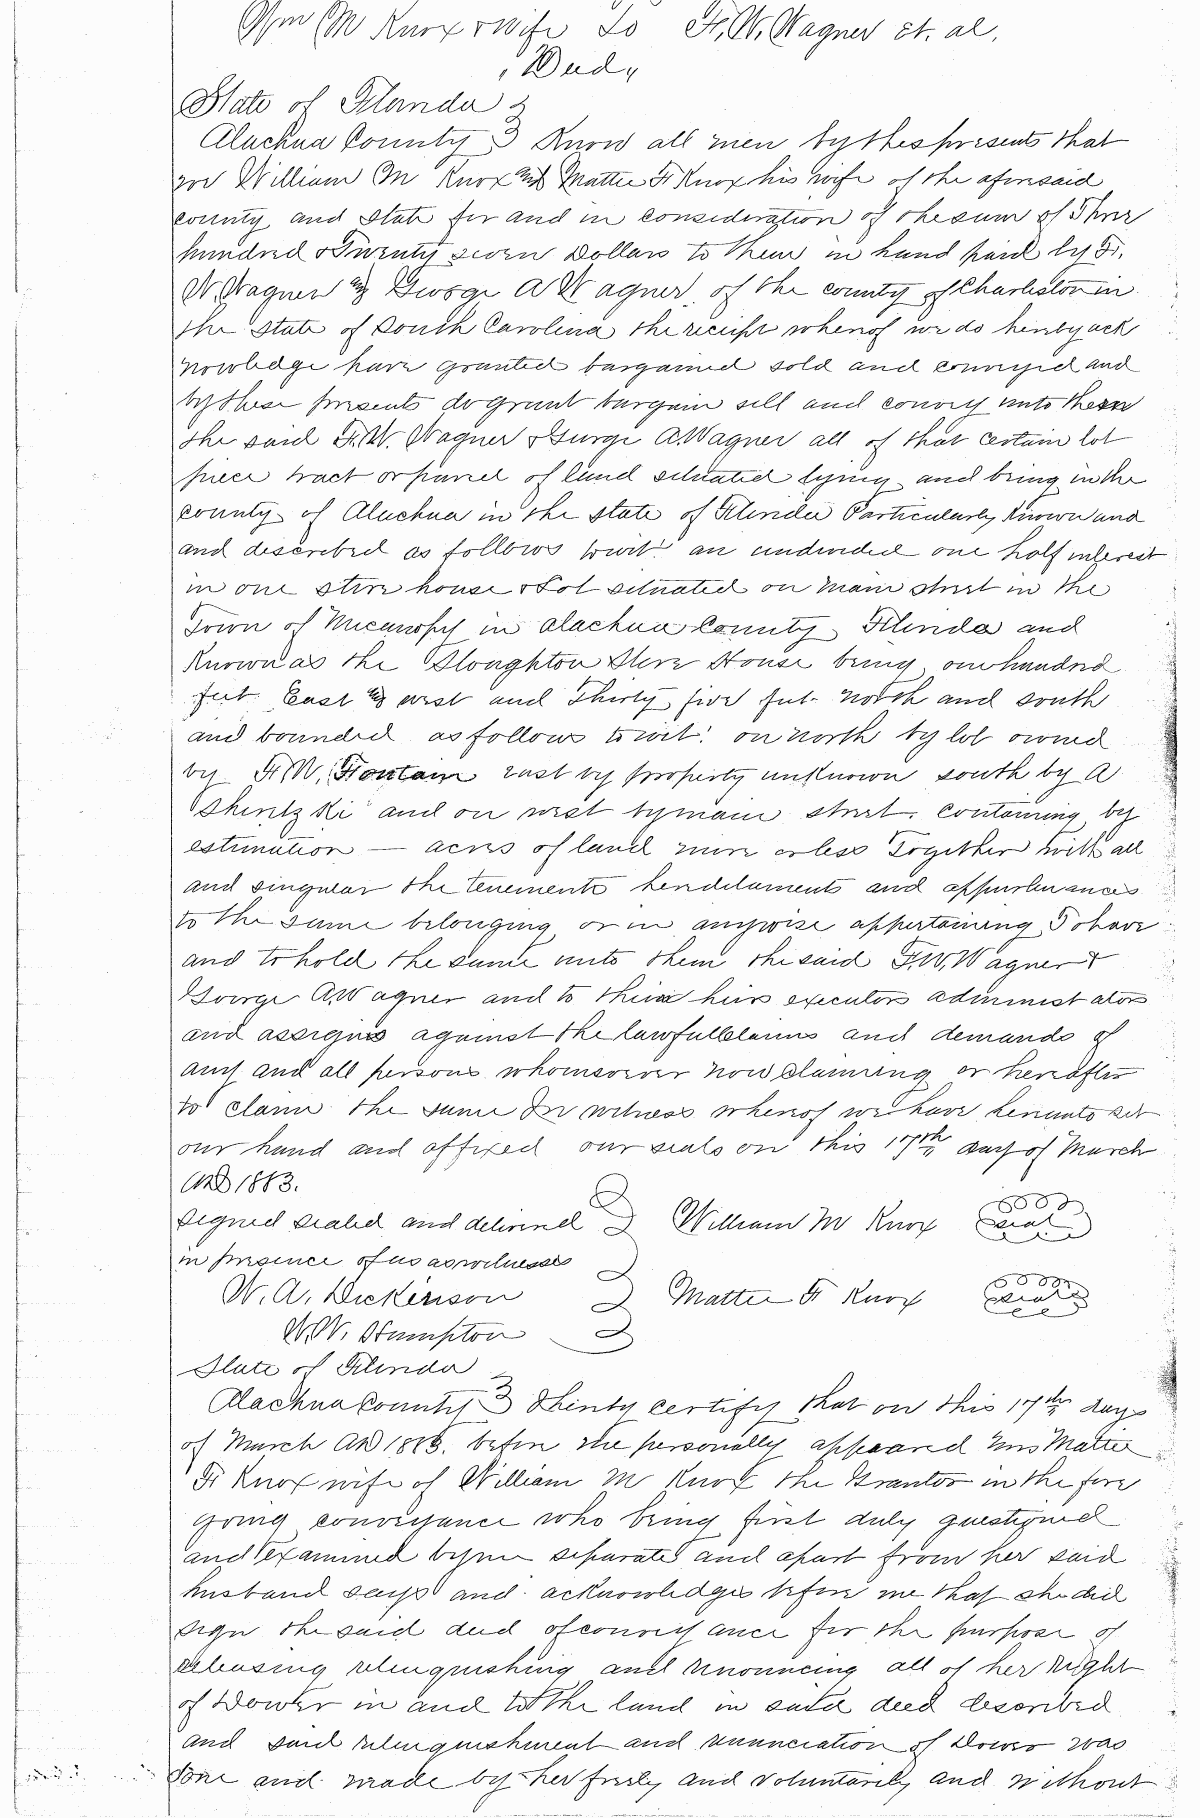 Wm M Knox & Wife To F. W. Wagner et. al.
"Deed"
State of Florida
Alachua County } Know all men by thes presents that
we William M Knox and Mattie F Knox his wife of the aforesaid
county and State for and in consideration of the sum of Three
hundred & Twenty seven Dollars to them in hand paid by F.
W. Wagner & George A Wagner of the county of Charleston in
the State of South Carolina the receipt whereof we do hereby ack
nowledge have granted bargained sold and conveyed and
by these presents do grant bargain sell and convey unto them
the said F.W. Wagner & George A Wagner all of that certain lot
piece tract or parcel of land situated lying and being in the
county of Alachua in the State of Florida Particularly Known and
and described as follows towit: an undivided one half interest
in one store house & Lot situated on Main street in the
Town of Micanopy in Alachua County Florida and
Known as the Stoughton Store House being one hundred
feet East & west and Thirty five feet north and south
and bounded as follows towit: on north by lot owned
by F.M. Fontain east by property unknown south by A
Shentzki and on west by main street. Containing by
estimation — acres of land more or less Together with all
and singular the tenements herditaments and appurtenances
to the same belonging or in anywise appertaining To have
and to hold the same unto them the said F.W. Wagner &
George A Wagner and to their heirs executors administ ators
and assigns against the lawfull claims and demands of
any and all persons whomsoever now claiming or hereafter
to claim the same In witness whereof we have hereunto set
our hand and affixed our seals on this 17th day of March
AD 1883.
signed sealed and delivered } William M Knox seal
in presence of us as witnesses
W. A. Dickinson } Mattie F Knox seal
W.W. Hampton
State of Florida
Alachua County } I hereby certify that on this 17th day
of March AD 1883. before me personally appeared Mrs Mattie
F Knox wife of William M Knox the Grantor in the fore
going conveyance who being first duly questioned
and examined by me separate and apart from her said
husband says and acknowledges before me that she did
sign the said deed of convey ance for the purpose of
releasing relinquishing and renouncing all of her Right
of Dower in and to the land in said deed described
and said relinquishment and renunciation of Dower was
Done and made by her freely and voluntarily and without